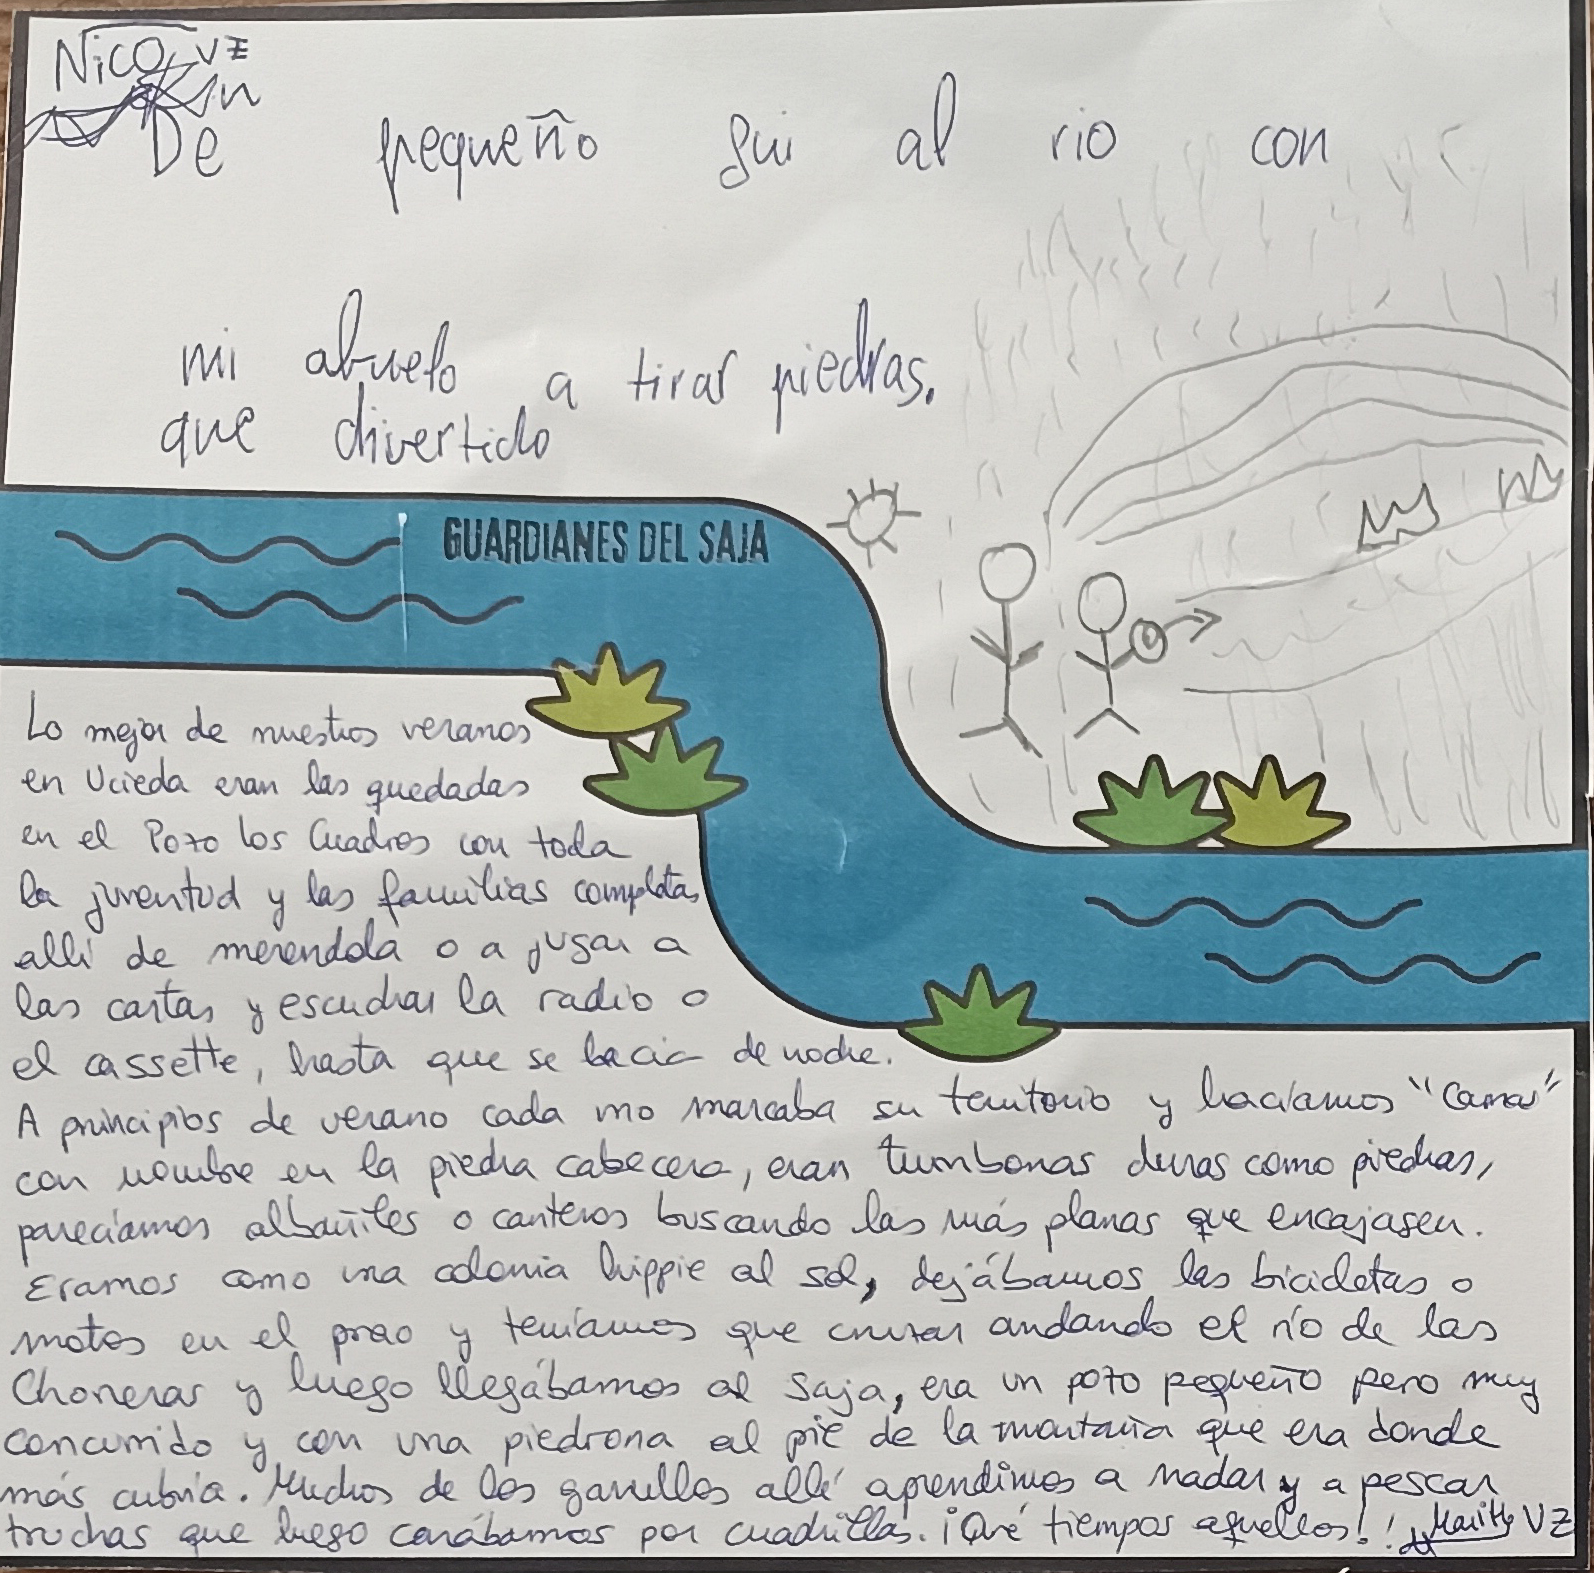 Nico VZ
De pequeño fui al rio con
mi abuelo a tirar piedras.
que divertido
GUARDIANES DEL SAJA
Lo mejor de nuestros veranos
en Ucieda eran las quedadas
en el Pozo los Cuadros con toda
la juventud y las familias completas
allí de merendola o a jugar a
las cartas y escuchar la radio o
el cassette, hasta que se hacía de noche.
A principios de verano cada uno marcaba su territorio y hacíamos "camas"
con nombre en la piedra cabecera, eran tumbonas duras como piedras,
parecíamos albañiles o canteros buscando las más planas que encajasen.
Eramos como una colonia hippie al sol, dejábamos las bicicletas o
motos en el prao y teníamos que cruzar andando el río de las
Choneras y luego llegábamos al Saja, era un pozo pequeño pero muy
concurrido y con una piedrona al pie de la montaña que era donde
más cubría. Muchos de los garullos allí aprendimos a nadar y a pescar
truchas que luego cenábamos por cuadrillas. ¡Qué tiempos aquellos!! VZ